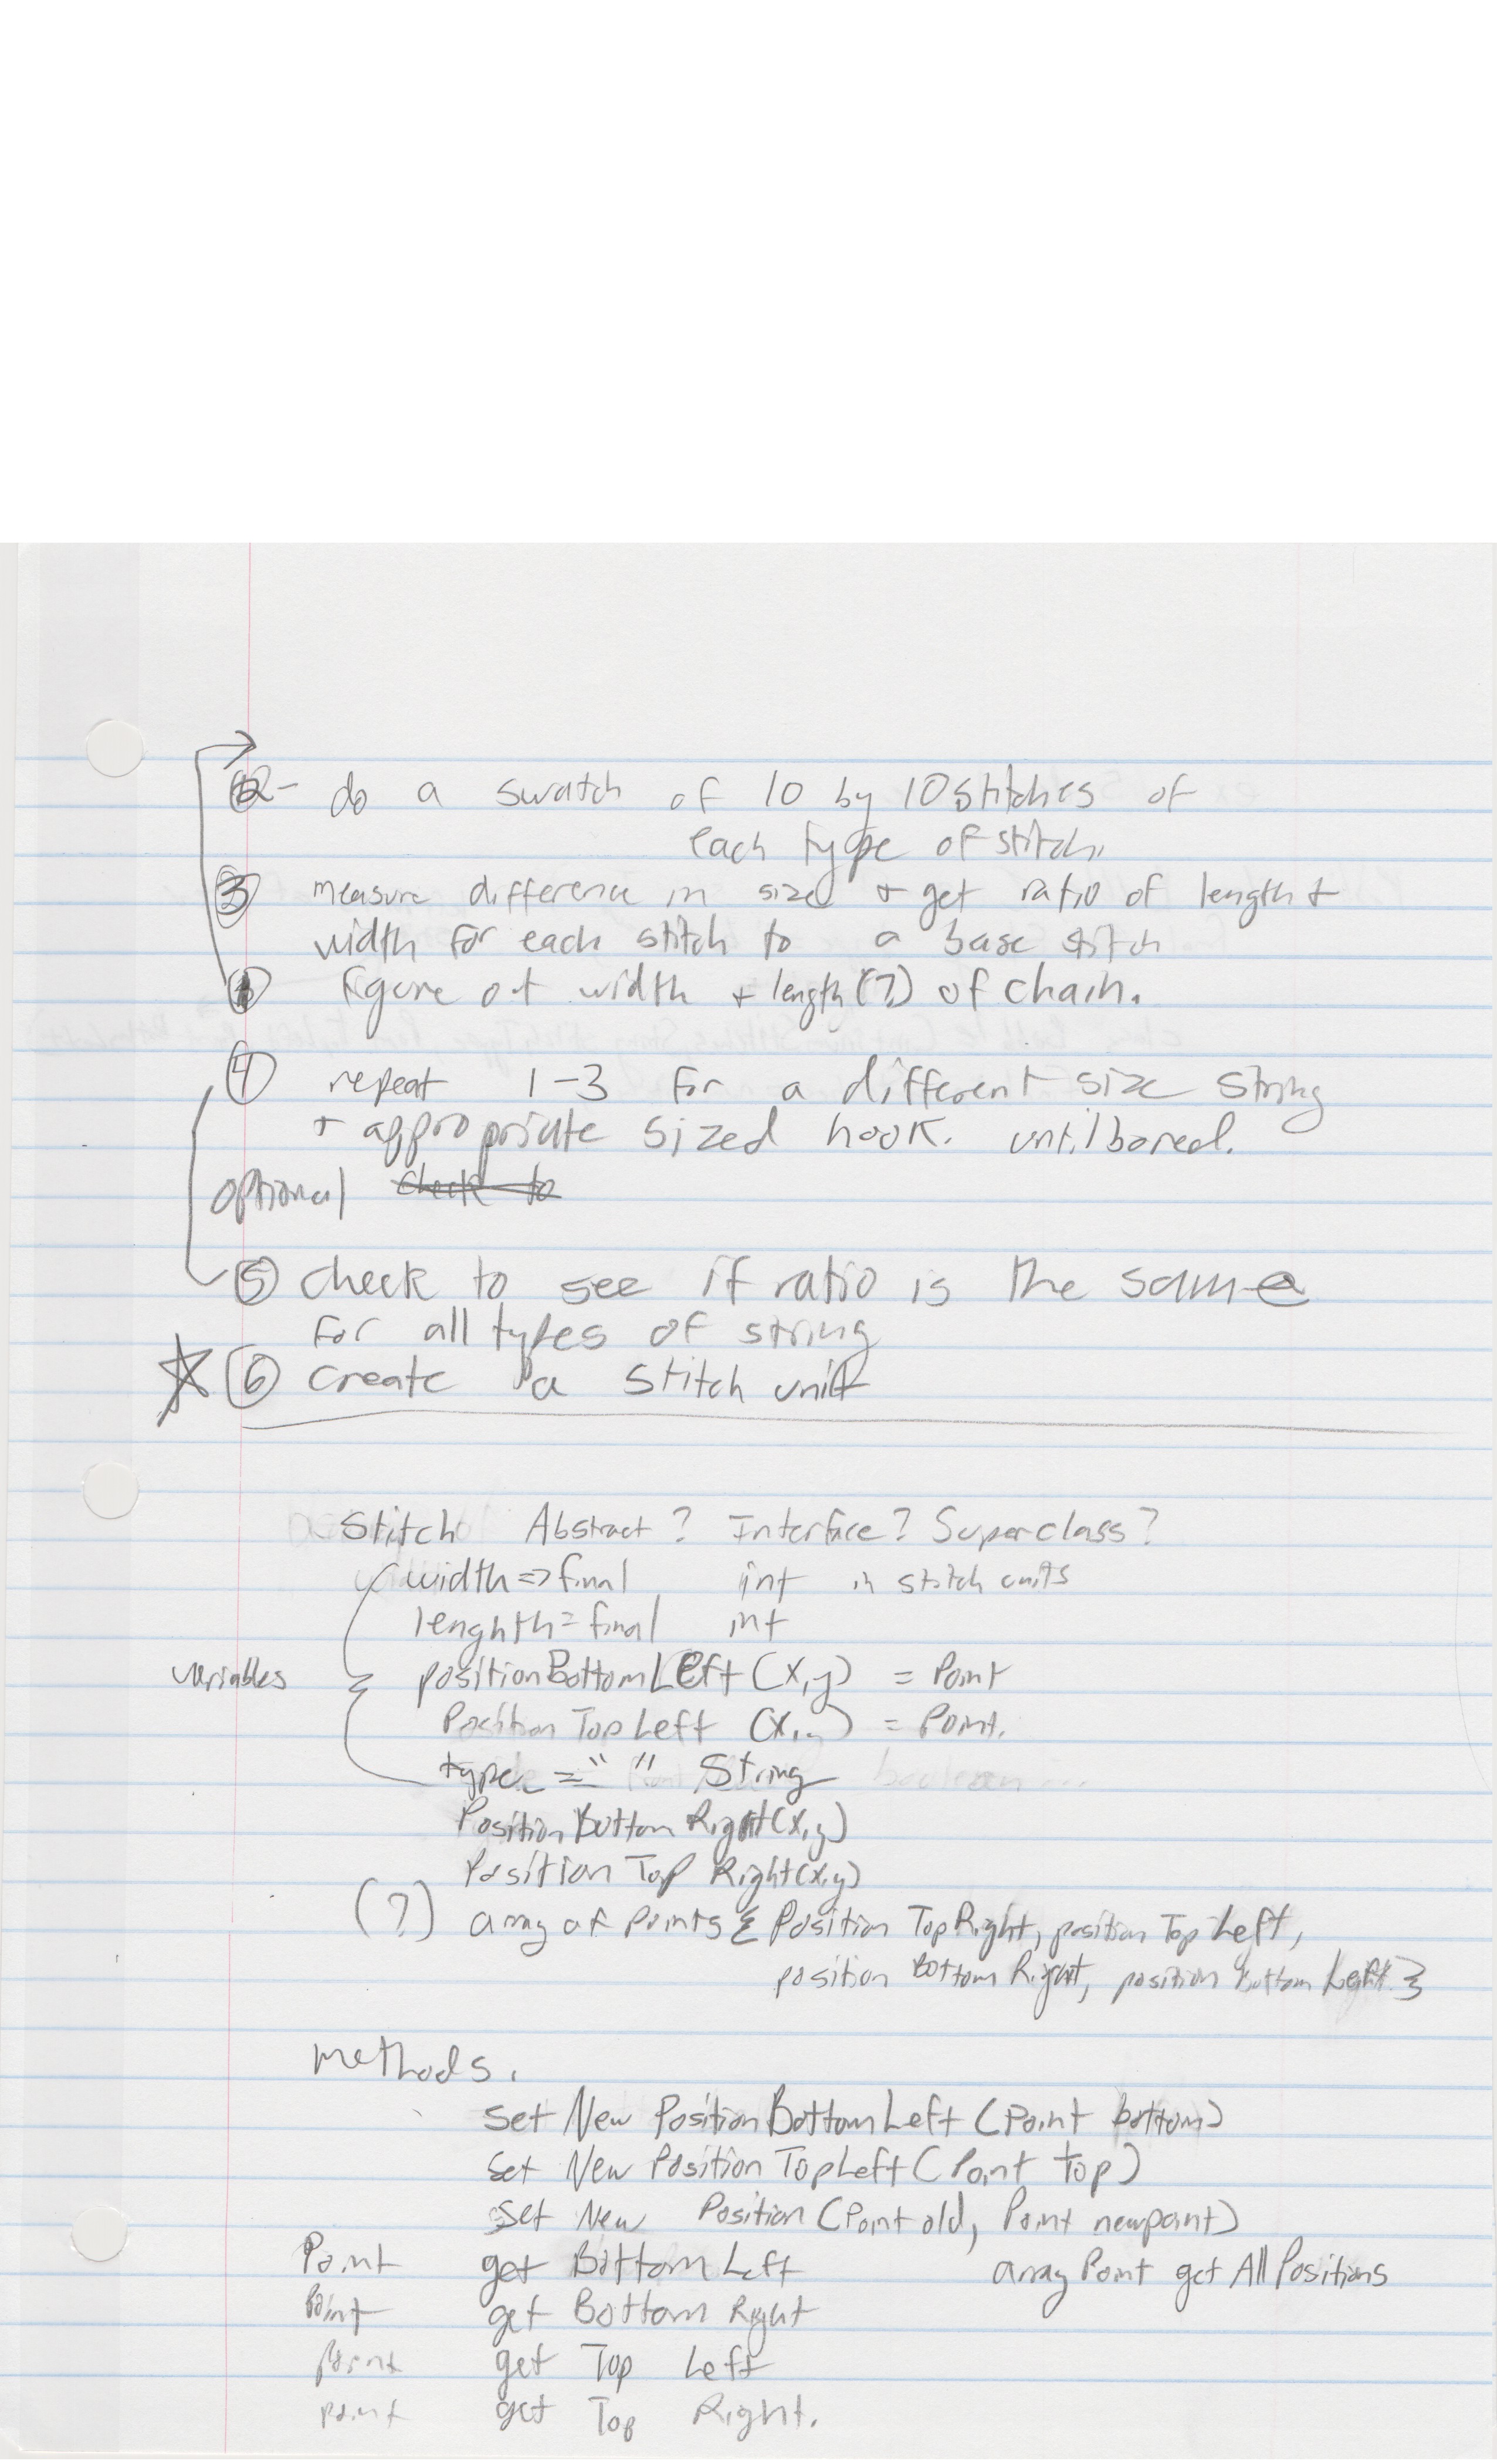 ②- do a swatch of 10 by 10 stitches of
each type of stitch.
③ measure difference in size + get ratio of length +
width for each stitch to a base stitch
① figure out width + length (?) of chain.
④ repeat 1-3 for a different size string
+ appropriate sized hook. until bored.
optional check to
⑤ check to see if ratio is the same
for all types of string
⑥ create a stitch unit
Stitch Abstract? Interface? Superclass?
width => final int in stitch units
lenghth = final int
variables positionBottomLeft (x,y) = Point
Position Top Left (x,y) = Point.
type = " " String boolean ...
Position Bottom Right (x,y)
Position Top Right (x,y)
(?) array of points { Position Top Right, position Top Left,
position Bottom Right, position Bottom Left. }
methods.
set New Position Bottom Left (Point bottom)
set New Position Top Left (Point top)
set New Position (Point old, Point newpoint)
Point get Bottom Left array Point get All Positions
Point get Bottom Right
point get Top Left
point get Top Right.